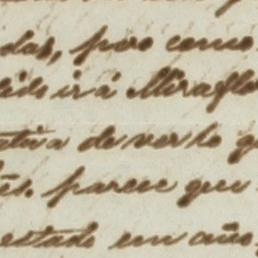 das, pero como
ir á Miraflo
tiva de verlo q
parece que
estado en año